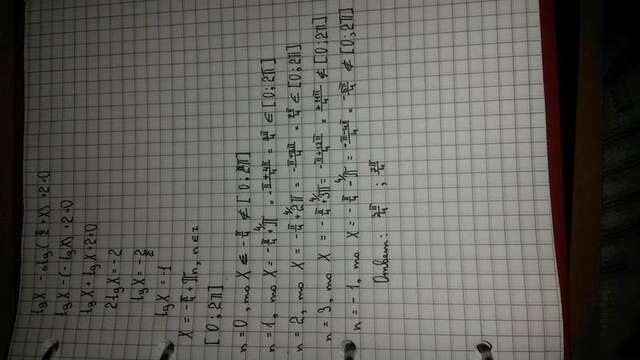 tgX - ctg(π/2 + X) + 2 = 0
tgX - (-tgX) + 2 = 0
tgX + tgX + 2 = 0
2tgX = -2
tgX = -2/2
tgX = -1
X = -π/4 + πn, n ∈ z
[0; 2π]
n = 0, то X ∈ -π/4 ∉ [0; 2π]
n = 1, то X = -π/4 + π = -π+4π/4 = 3π/4 ∈ [0; 2π]
n = 2, то X = -π/4 + 2π = -π+8π/4 = 7π/4 ∈ [0; 2π]
n = 3, то X = -π/4 + 3π = -π+12π/4 = +11π/4 ∉ [0; 2π]
n = -1, то X = -π/4 - π = -π-4π/4 = -5π/4 ∉ [0; 2π]
Ответ: 3π/4 ; 7π/4